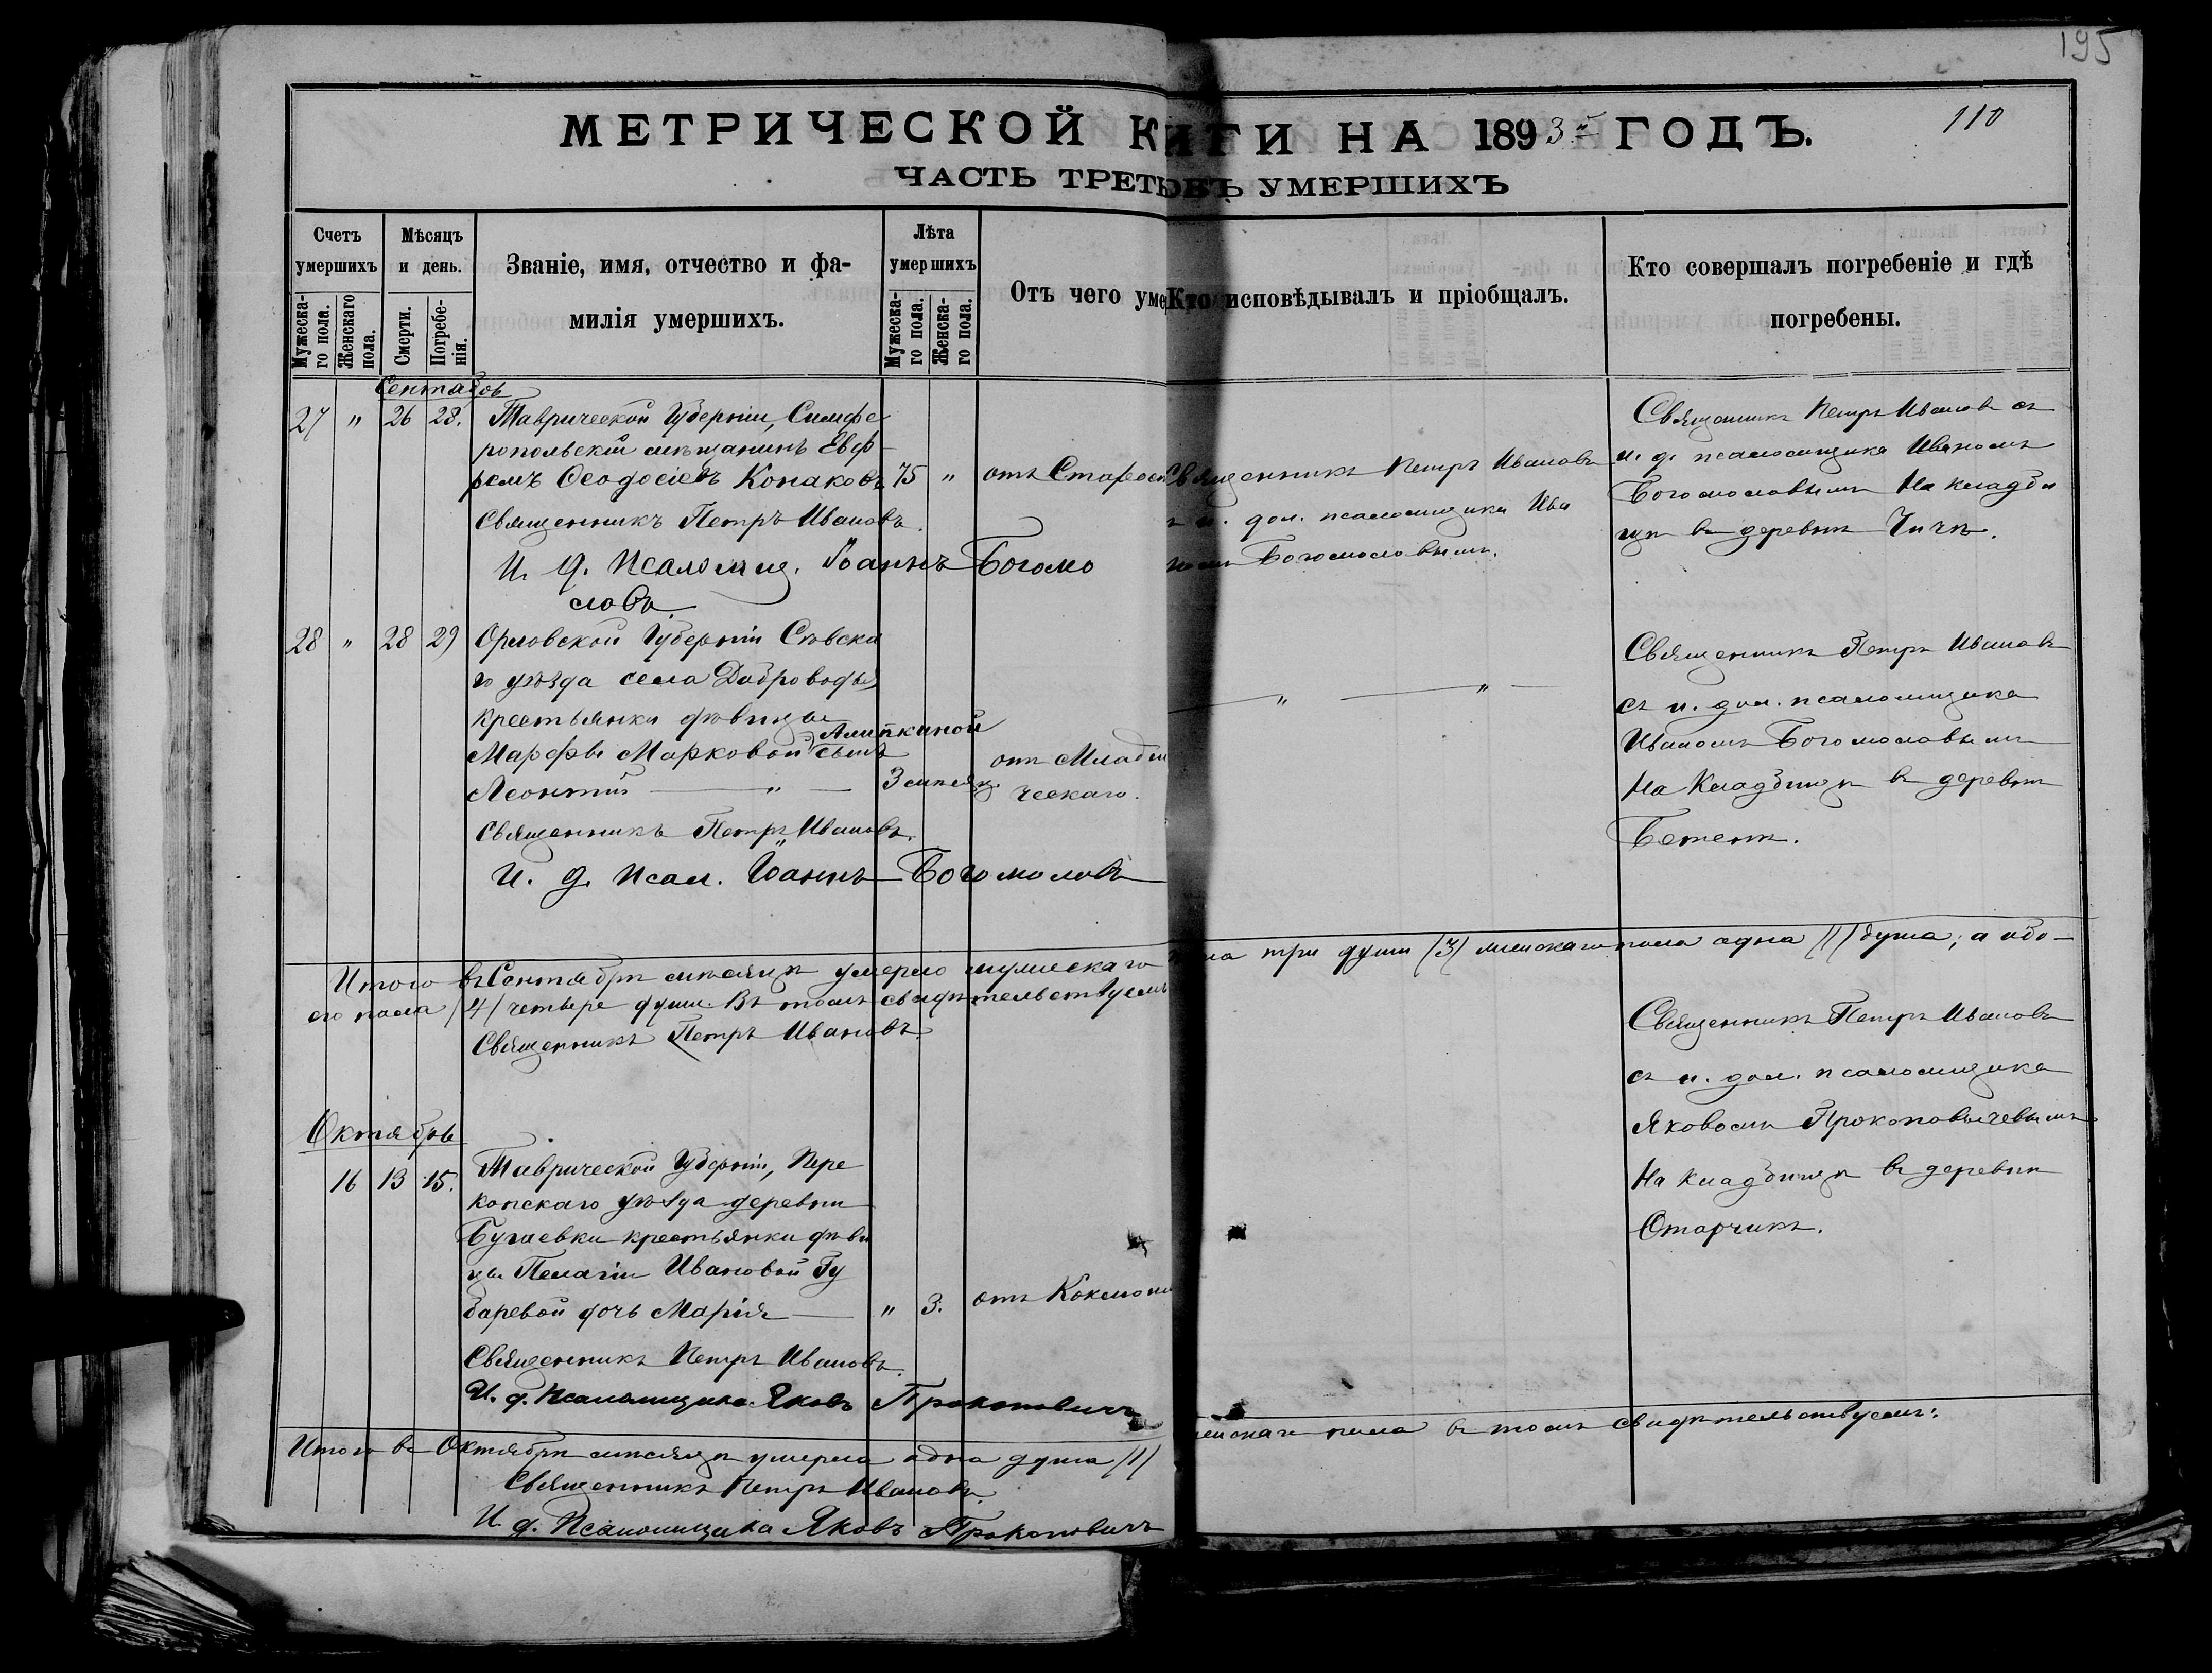 195
110
МЕТРИЧЕСКОЙ КНИГИ НА 1893й ГОДЪ.
ЧАСТЬ ТРЕТЬ УМЕРШИХЪ
Счетъ умершихъ
Мужеска-го пола.
Женскаго пола.
Мѣсяцъ и день.
Смерти.
Погребе-нія.
Званіе, имя, отчество и фа-
милія умершихъ.
Лѣта умершихъ
Мужеска-го пола.
Женска-го пола.
Отъ чего уме
Кто исповѣдывалъ и пріобщалъ.
Кто совершалъ погребеніе и гдѣ
погребены.
Сентябрь
27 " 26 28. Таврической Губерніи, Симфе
ропольскій мѣщанинъ Евф
ремъ Ѳеодосіевъ Конаковъ 75 " отъ Старос
Священникъ Петръ Ивановъ.
И. д. Псаломщ. Іоаннъ Богомо
словъ
Священникъ Петръ Ивановъ
съ и. дол. псаломщика Ива
номъ Богомоловымъ.
Священникъ Петръ Ивановъ съ
и. д. псаломщика Иваномъ
Богомоловымъ На кладби
щѣ въ деревнѣ Чичѣ.
28 " 28 29 Орловской Губерніи Сѣвска
го уѣзда села Доброводья
крестьянки дѣвицы
Марфы Марковой Алипкиной сынъ
Леонтій — " — 3 мѣсяц. отъ Младен
ческаго.
Священникъ Петръ Ивановъ.
И. д. псал. Іоаннъ Богомоловъ
" "
Священникъ Петръ Ивановъ
съ и. дол. псаломщика
Иваномъ Богомоловымъ
На Кладбищѣ въ деревнѣ
Бетенѣ.
Итого въ Сентябрѣ мѣсяцѣ умерло мужескаго пола три души (3) женскаго пола одна (1) душа; а обо-
его пола (4) четыре души. Въ томъ свидѣтельствуемъ
Священникъ Петръ Ивановъ.
Октябрь
16 13 15. Таврической Губерніи, Пере
копскаго уѣзда деревни
Бугаевки крестьянки дѣви
цы Пелагіи Ивановой Гу
баревой дочь Марія — " 3. отъ Коклюш
Священникъ Петръ Ивановъ.
И. д. Псаломщика Яковъ Прокоповичъ
Священникъ Петръ Ивановъ
съ и. дол. псаломщика
Яковомъ Прокоповичевымъ
На кладбищѣ въ деревнѣ
Отарчикъ.
Итого въ Октябрѣ мѣсяцѣ умерла одна душа (1) женскаго пола въ томъ свидѣтельствуемъ:
Священникъ Петръ Ивановъ.
И. д. Псаломщика Яковъ Прокоповичъ